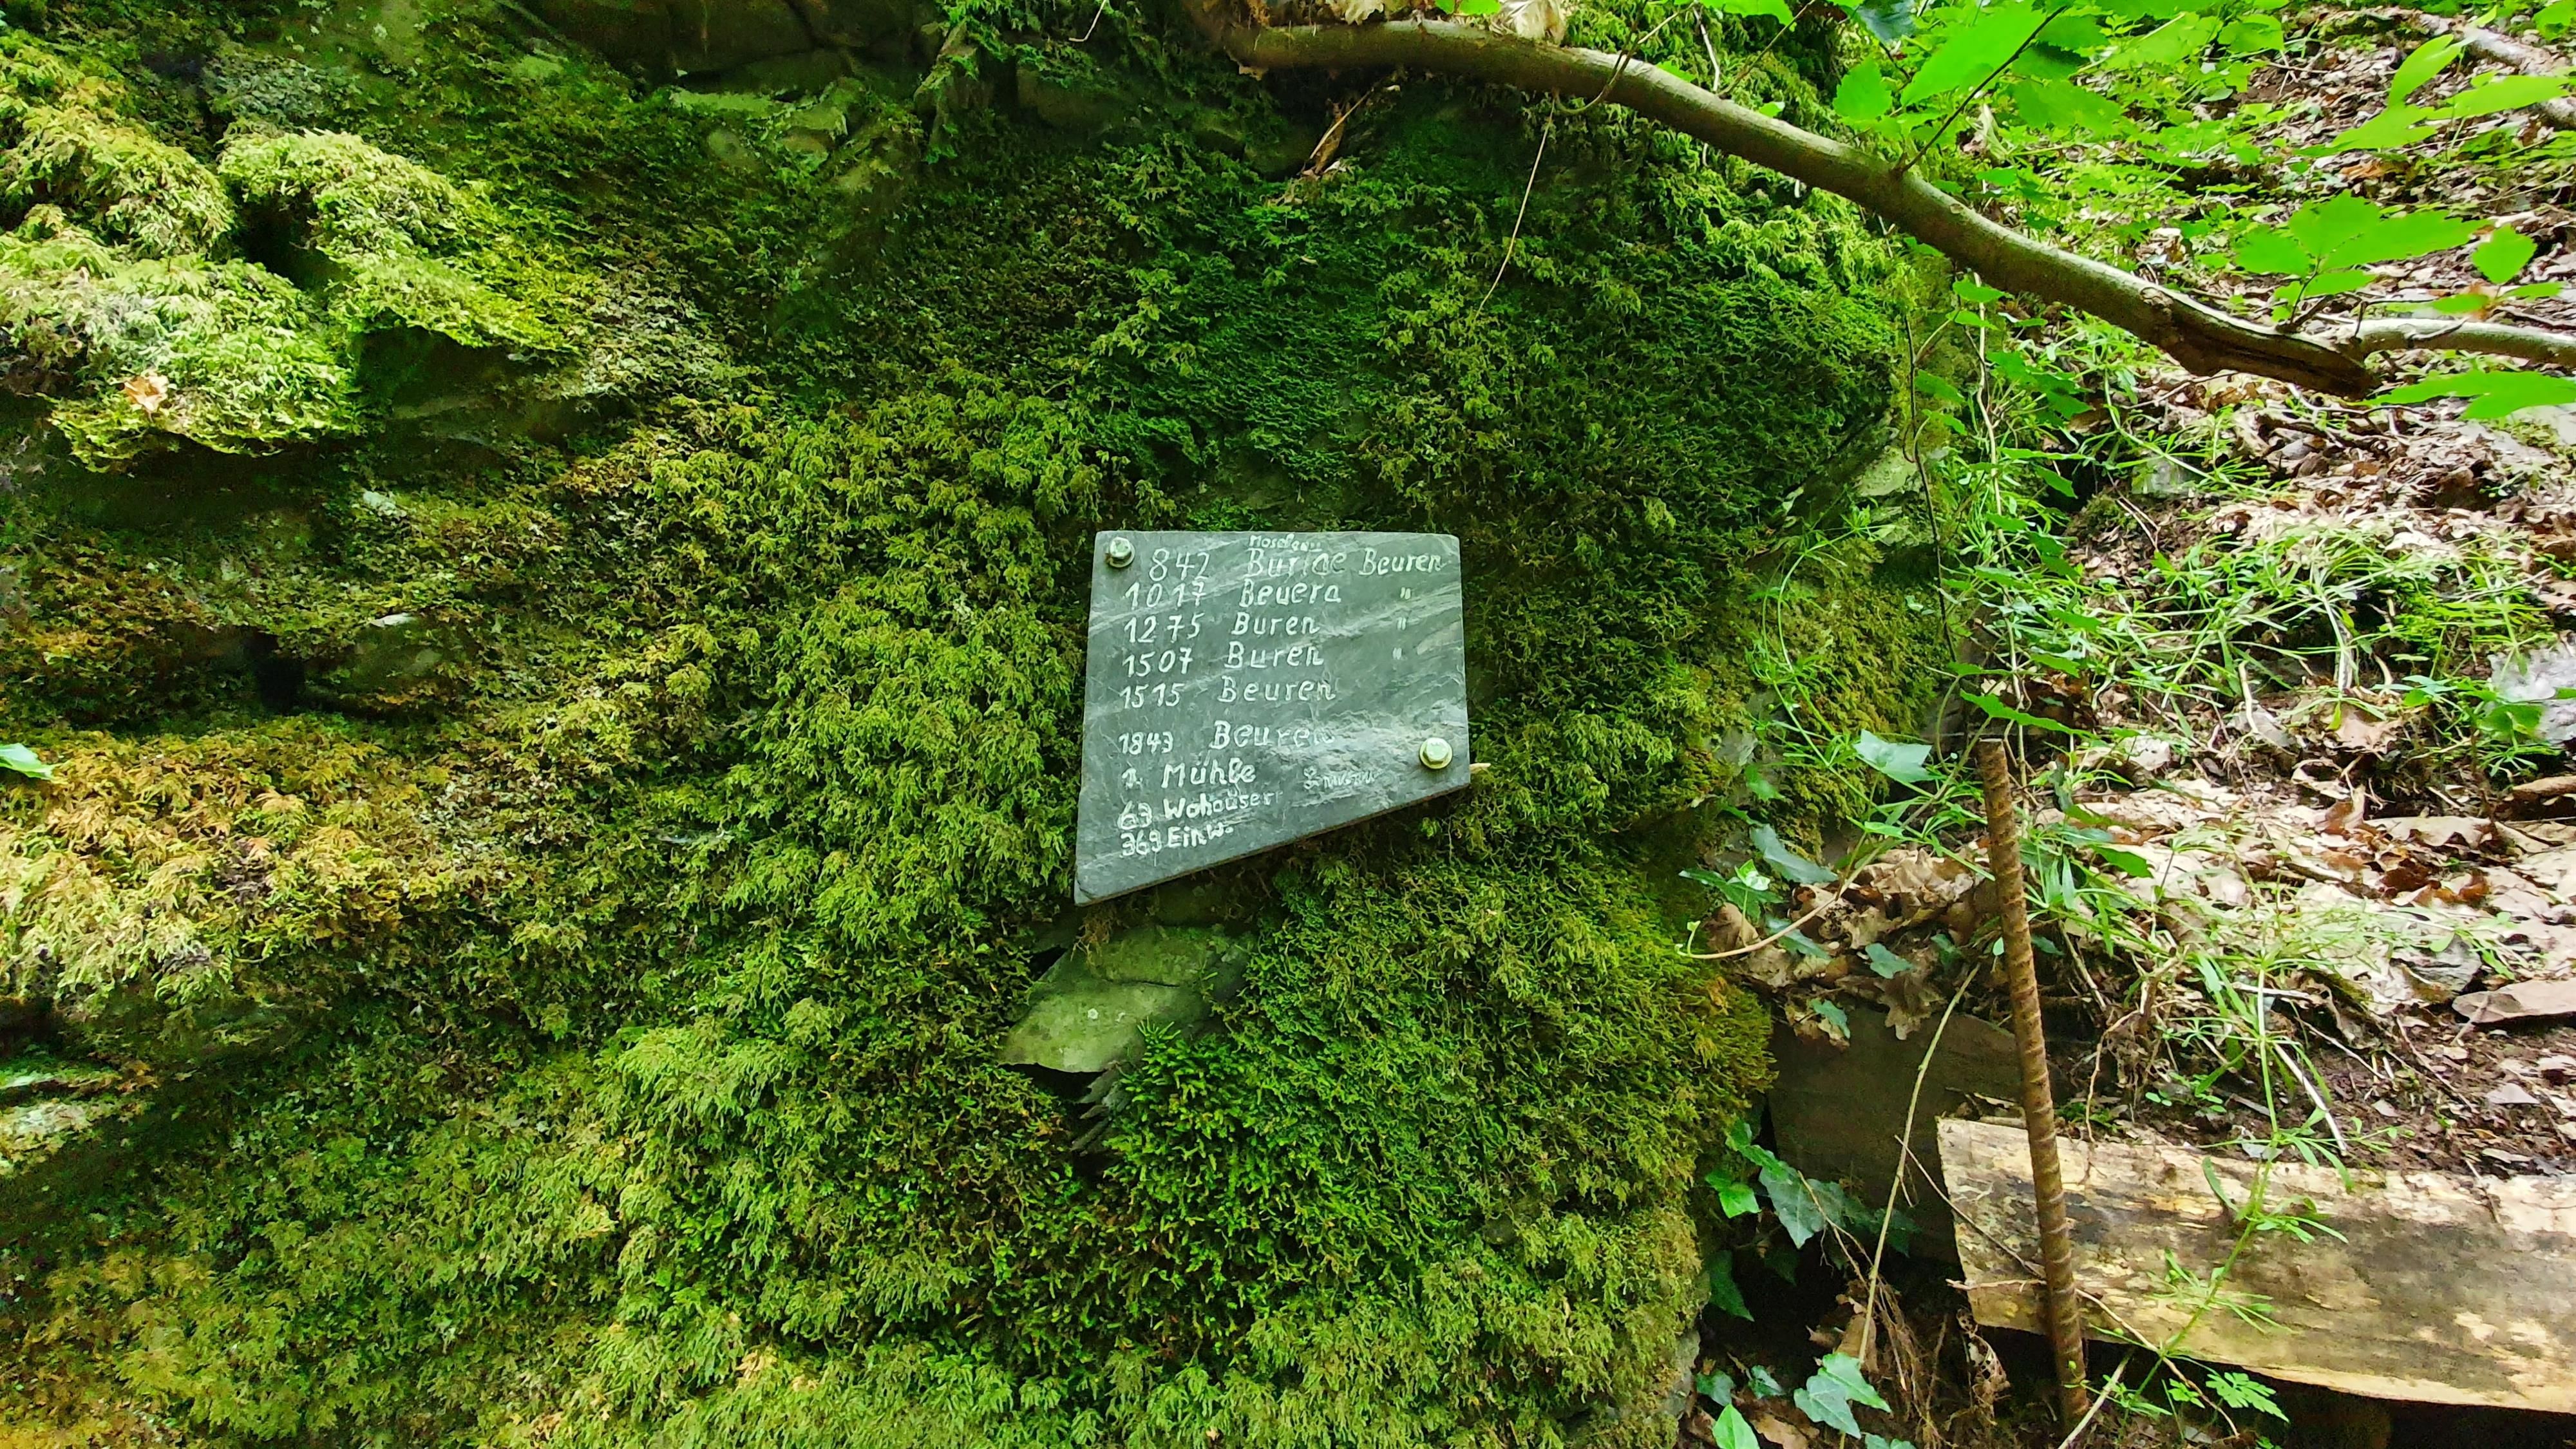 842 Burice Beuren
1017 Beuera "
1275 Buren "
1507 Buren "
1515 Beuren
1843 Beuren
1 Mühle
63 Wohäuser
369 Einw.